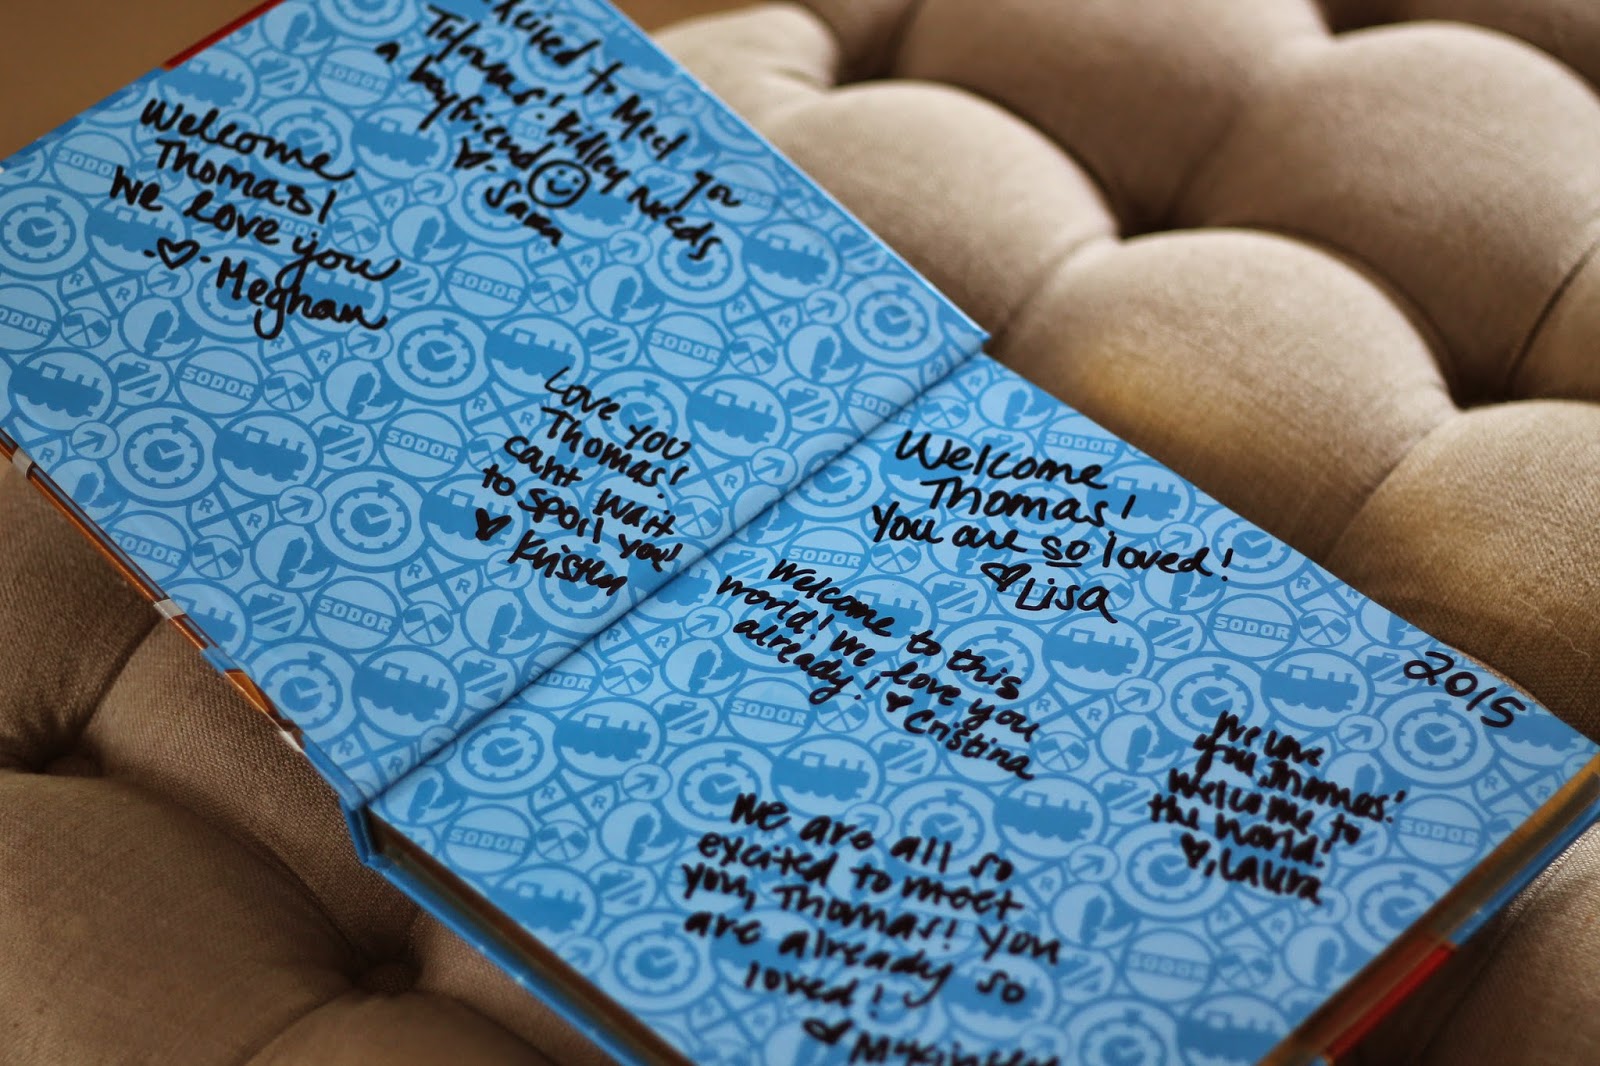 to Meet you
Thomas! Ridley Needs
a boyfriend
Sam
Welcome
Thomas!
We love you
Meghan
Love you
Thomas!
can't wait
to spoil you!
Kristen
Welcome
Thomas!
You are so loved!
Lisa
Welcome to this
world! We love you
already!
Cristina
2015
We love
you, Thomas!
Welcome to
the world!
Laura
We are all so
excited to meet
you, Thomas! You
are already so
loved!
SODOR
SODOR
SODOR
SODOR
SODOR
SODOR
SODOR
SODOR
SODOR
SODOR
SODOR
SODOR
SODOR
SODOR